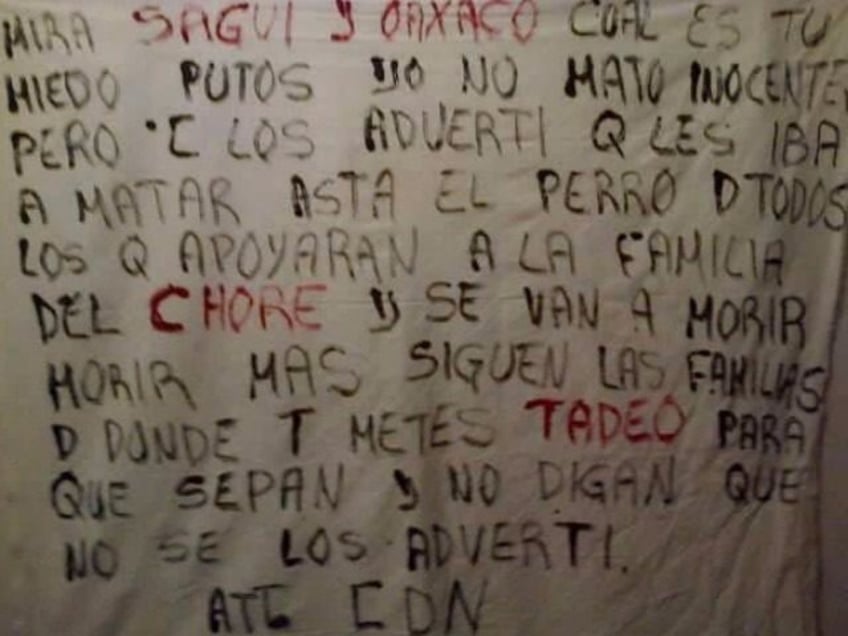 MIRA SAGUI Y OAXACO CUAL ES TU
MIEDO PUTOS YO NO MATO INOCENTE,
PERO C LOS ADVERTI Q LES IBA
A MATAR ASTA EL PERRO D TODOS
LOS Q APOYARAN A LA FAMILIA
DEL CHORE Y SE VAN A MORIR
MORIR MAS SIGUEN LAS FAMILIAS
D DONDE T METES TADEO PARA
QUE SEPAN Y NO DIGAN QUE
NO SE LOS ADVERTI.
ATE CDN